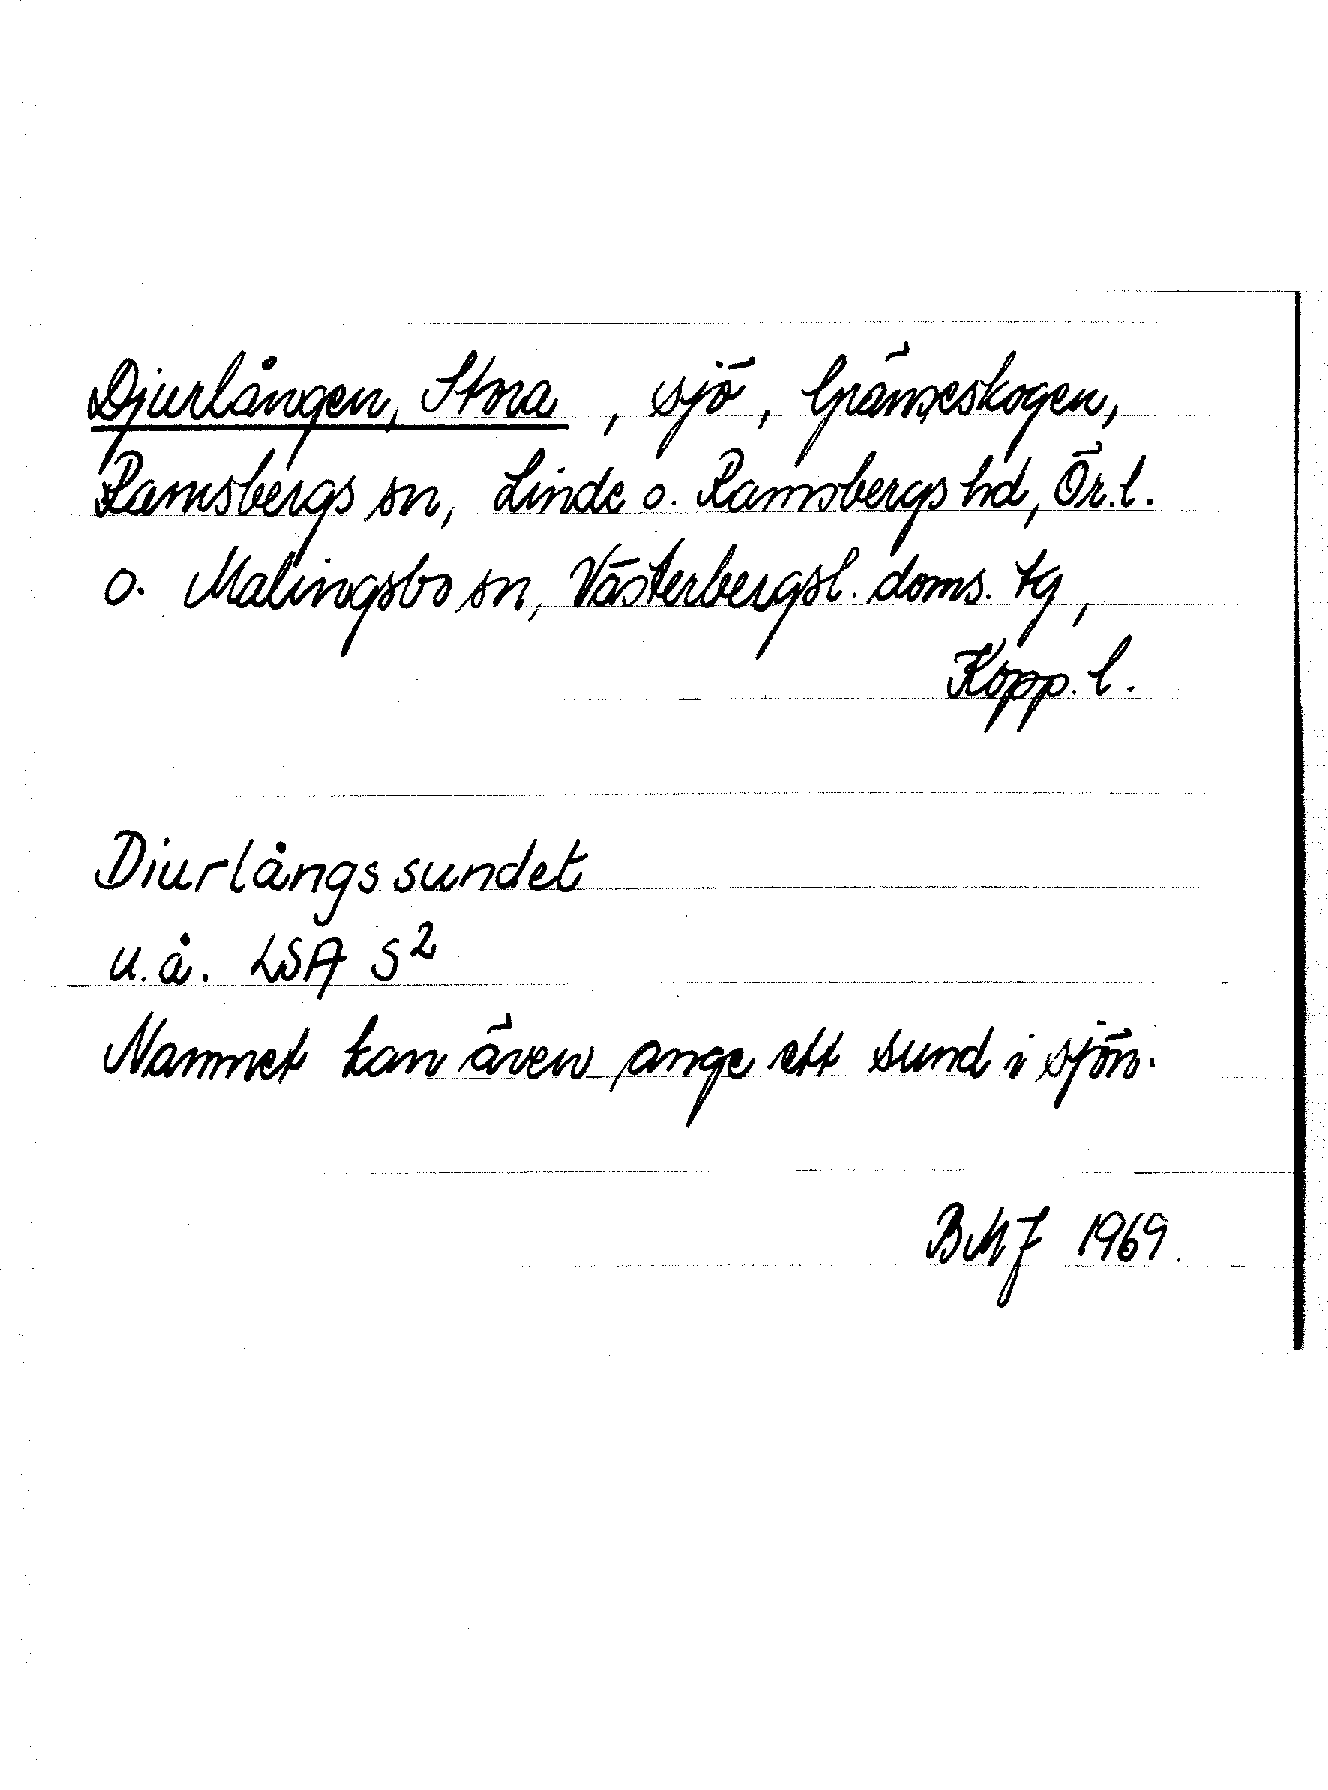 Djurlången, Stora, sjö, Gränseskogen,
Ramsbergs sn, Linde o. Ramsbergs hd, Ör.l.
o. Malingsbo sn, Västerbergsl. doms. tg,
Kopp. l.
Diurlångssundet
u.å. LSA S²
Namnet kan även ange ett sund i sjön.
BMJ 1969.